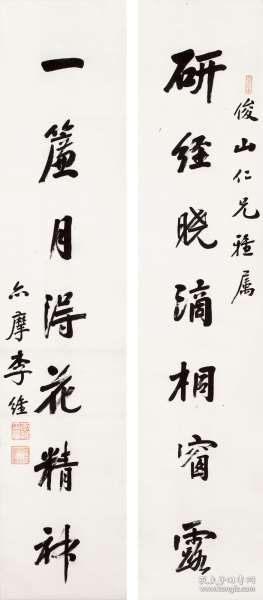 俊山仁兄雅属
研经晓滴桐窗露
一簾月浔花精神
亦摩李经